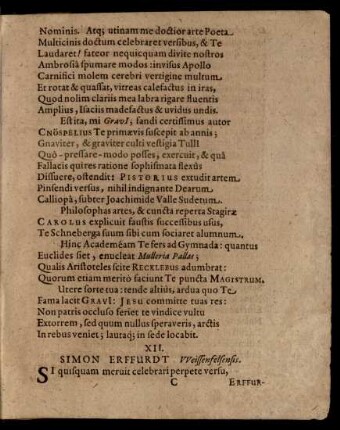 Nominis. Atq; utinam me doctior arte Poeta
Multicinis doctum celebraret versibus, & Te
Laudaret! fateor nequicquam divite nostros
Ambrosiâ spumare modos: invisus Apollo
Carnifici molem cerebri vertigine multum
Et rotat & quassat, vitreas calefactus in iras,
Quod nolim clariis mea labra rigare fluentis
Amplius, Isaciis madefactus & uvidus undis.
Est ita, mi Gravl, fandi certissimus autor
CNÖSPELIUS Te primævis suscepit ab annis;
Gnaviter, & graviter culti vestigia Tulli
Quô-prestare-modo posses, exercuit, & quâ
Fallacis quires ratione sophismata flexûs
Dissuere, ostendit: PISTORIUS extudit artem
Pinsendi versus, nihil indignante Dearum
Calliopâ, subter Joachimide Valle Sudetum.
Philosophas artes, & cuncta reperta Stagiræ
CAROLUS explicuit faustis successibus usus,
Te Schneberga suum sibi cum sociaret alumnum.
Hinc Academéam Te fers ad Gymnada: quantus
Euclides siet, enucleat Mulleria Pallas;
Qualis Aristoteles scite RECKLEBUS adumbrat:
Quorum etiam meritò faciunt Te puncta MAGISTRUM.
Utere sorte tua: tende altiùs, ardua quo Te
Fama lacit GRAVI: JESU committe tuas res:
Non patris occluso feriet te vindice vultu
Extorrem, sed quum nullus speraveris, arctis
In rebus veniet; lautaq; in sede locabit.
XII.
SIMON ERFFURDT Weissenfelsensis.
SI quisquam meruit celebrari perpete versu,
C ERFFUR-